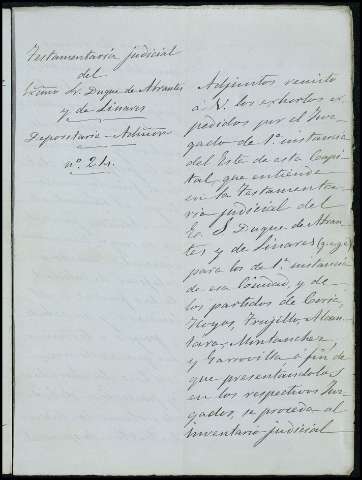 Testamentaría judicial
del
Excmo Sr. Duque de Abrantes
y de Linares
Depositario-Admon
nº 24.
Adjuntos remito
á V. los exhortos ex
pedidos por el Juz
gado de 1ª instancia
del Este de esta Capi
tal, que entiende
en la Testamenta
ria judicial del
Eº S Duque de Abran
tes y de Linares (q.e.g.e)
para los de 1ª instancia
de esa Ciudad, y de
los partidos de Coria,
Hoyos, Trujillo, Alcan
tara, Montanchez,
y Garrovilla á fin de
que presentandolos
en los respectivos Juz
gados, se proceda al
inventario judicial